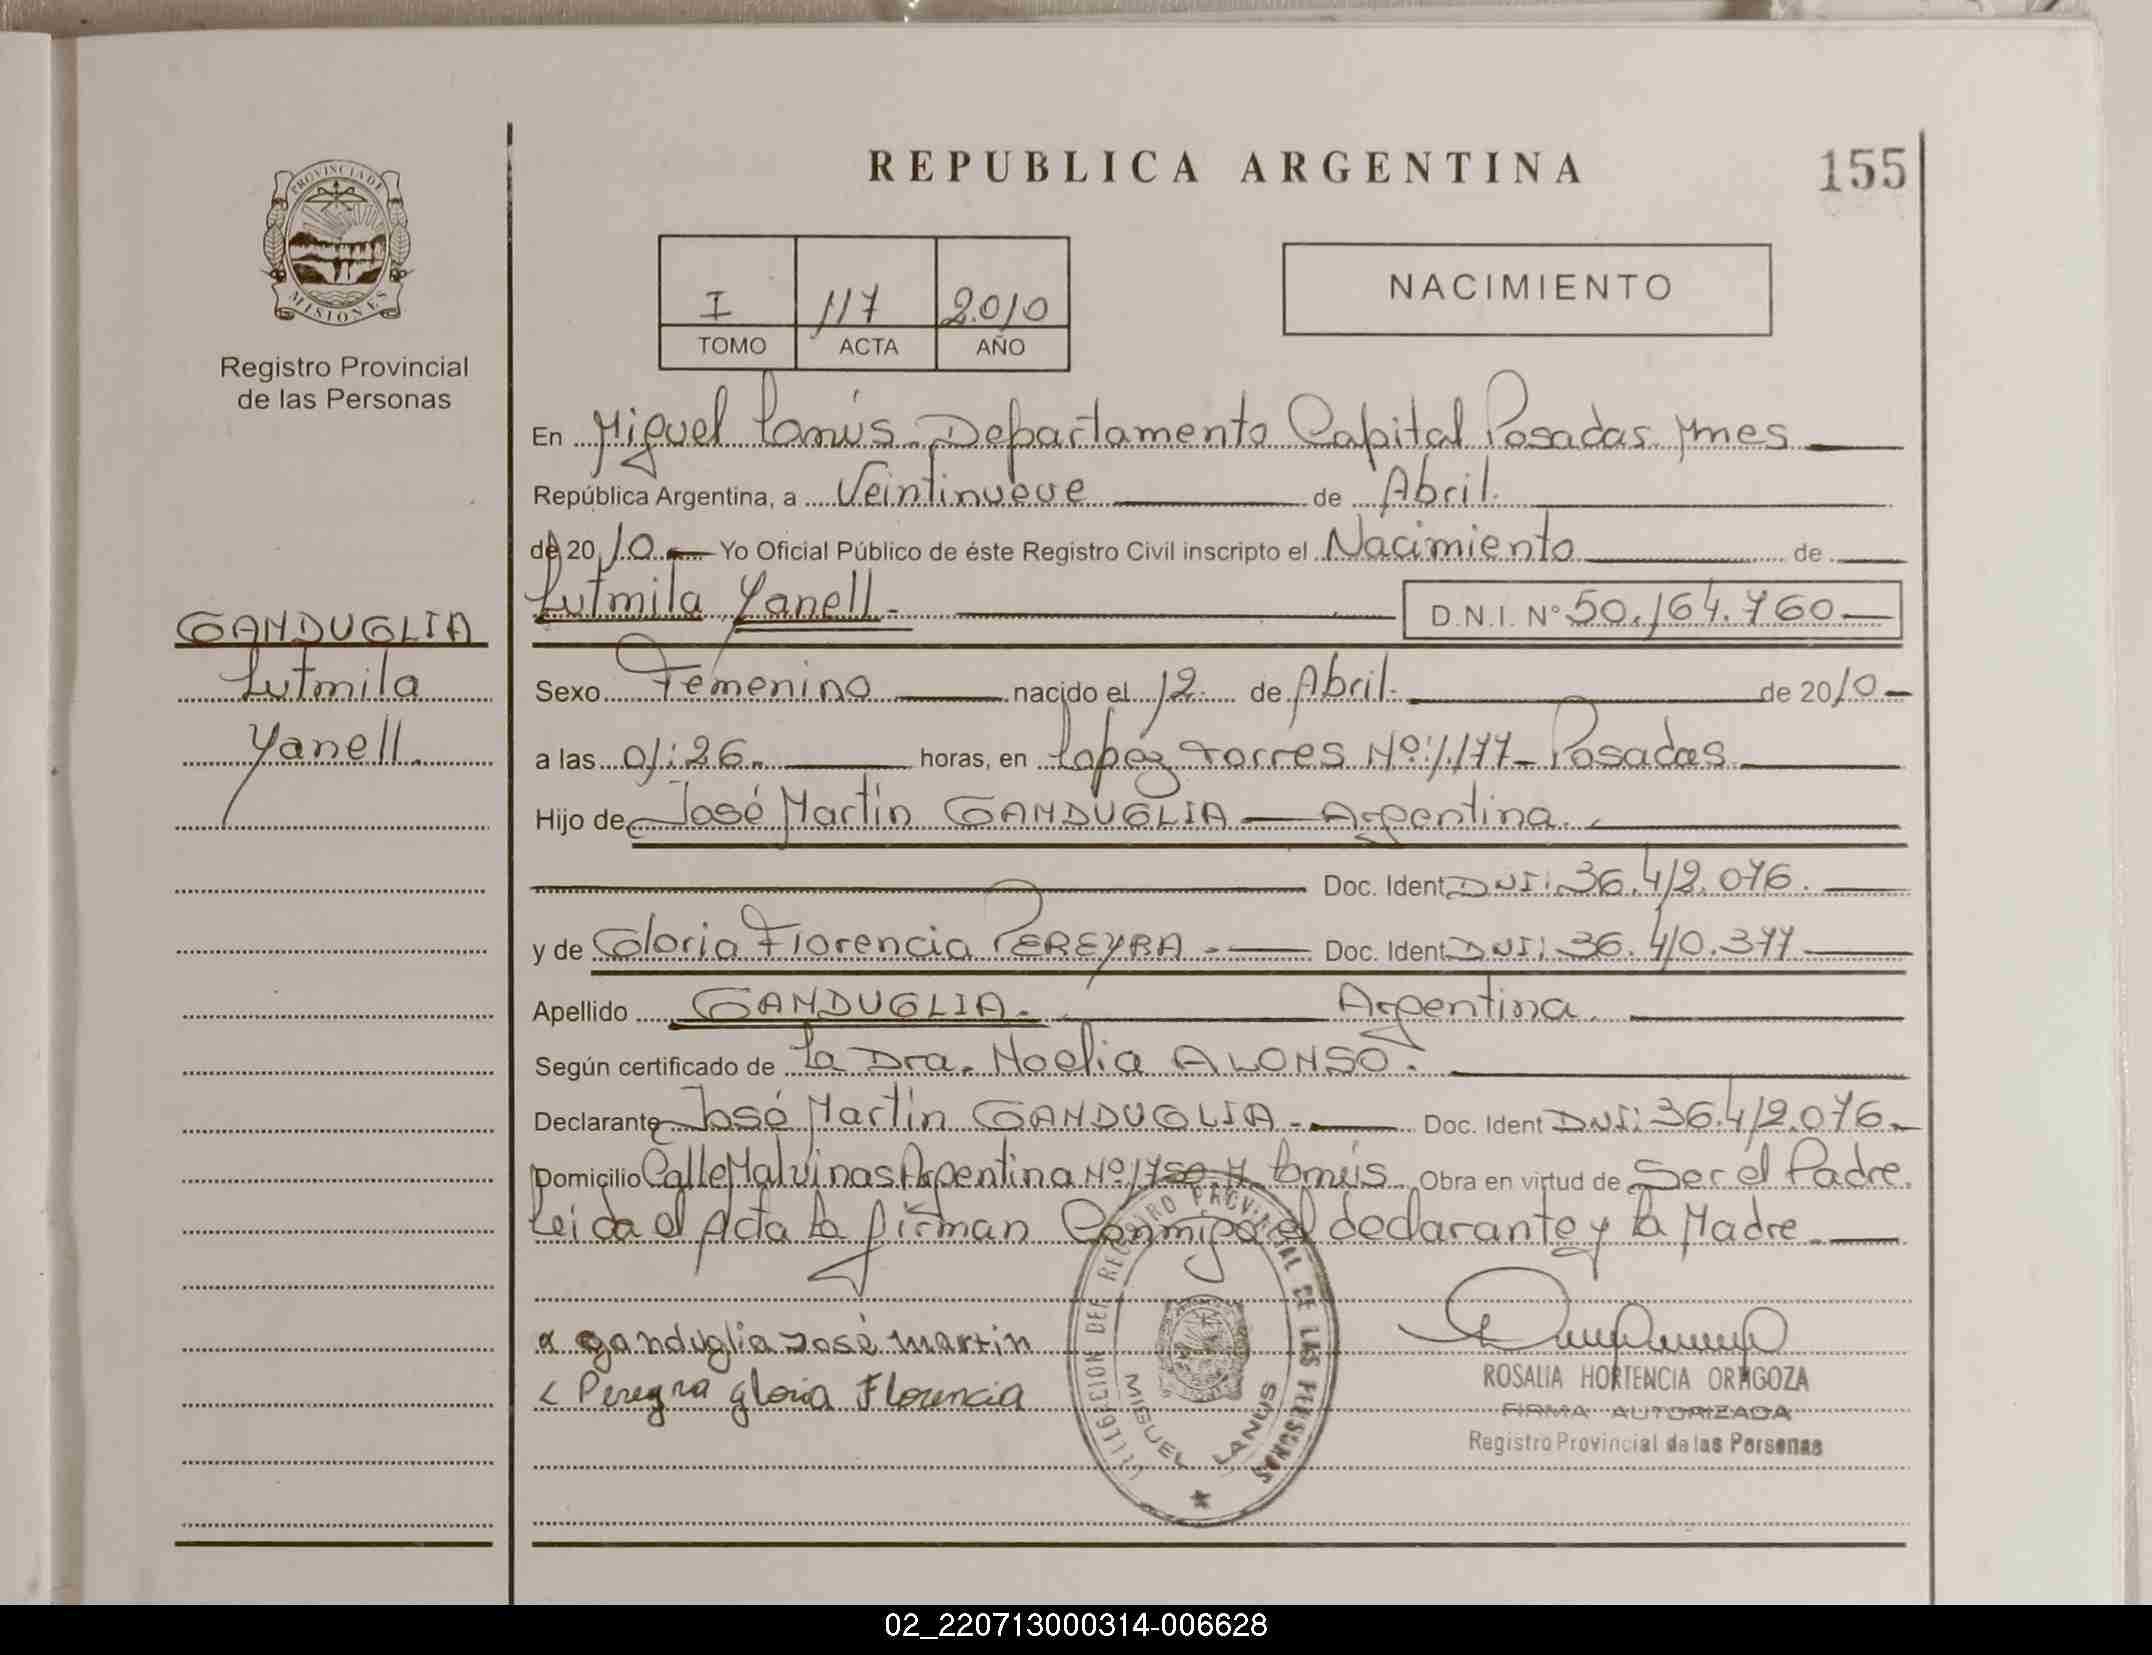 REPUBLICA ARGENTINA
155
PROVINCIA DE
MISIONES
Registro Provincial
de las Personas
I 117 2010
TOMO ACTA AÑO
NACIMIENTO
En Miguel Lanús. Departamento Capital Posadas Mnes
República Argentina, a Veintinueve de Abril.
de 2010 Yo Oficial Público de éste Registro Civil inscripto el Nacimiento de
Lutmila Yanell - D.N.I. N° 50.164.760
GANDUGLIA
Lutmila
Yanell.
Sexo Femenino nacido el 12 de Abril. de 2010
a las 01:26. horas, en Lopéz Torres Nº: 1.177- Posadas
Hijo de José Martín GANDUGLIA — Argentina.
Doc. Ident DNI: 36.412.076.
y de Gloria Florencia PEREYRA - Doc. Ident DNI: 36.410.377
Apellido GANDUGLIA. Argentina.
Según certificado de La Dra. Noelia ALONSO.
Declarante José Martín GANDUGLIA. Doc. Ident DNI: 36.412.076.
Domicilio Calle Malvinas Argentina Nº 1750 M. Lanús. Obra en virtud de Ser el Padre.
Leida el Acta La firman Conmigo el declarante y la Madre
ganduglia José Martin
Pereyra gloria Florencia
DELEGACION DEL REGISTRO PROVINCIAL DE LAS PERSONAS
MIGUEL LANUS
ROSALIA HORTENCIA ORAGOZA
FIRMA AUTORIZADA
Registro Provincial de las Personas
02_220713000314-006628